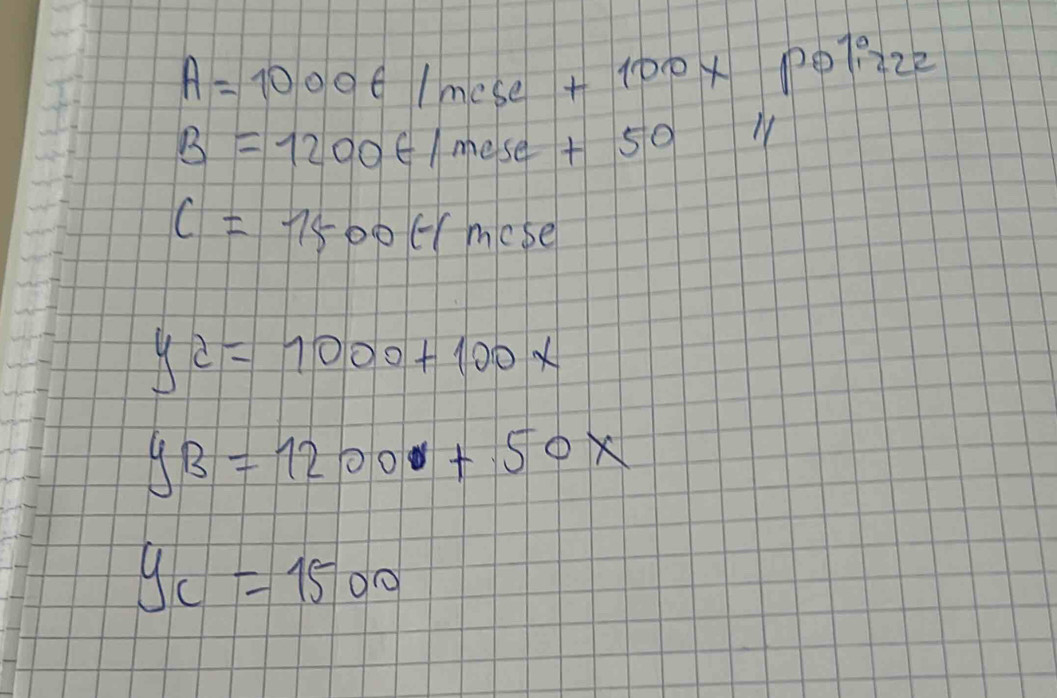 A = 1000€ / mese + 100 x polizza
B = 1200€ / mese + 50 "
C = 1500€ / mese
ya = 1000 + 100 x
yB = 1200 + 50 x
yc = 1500